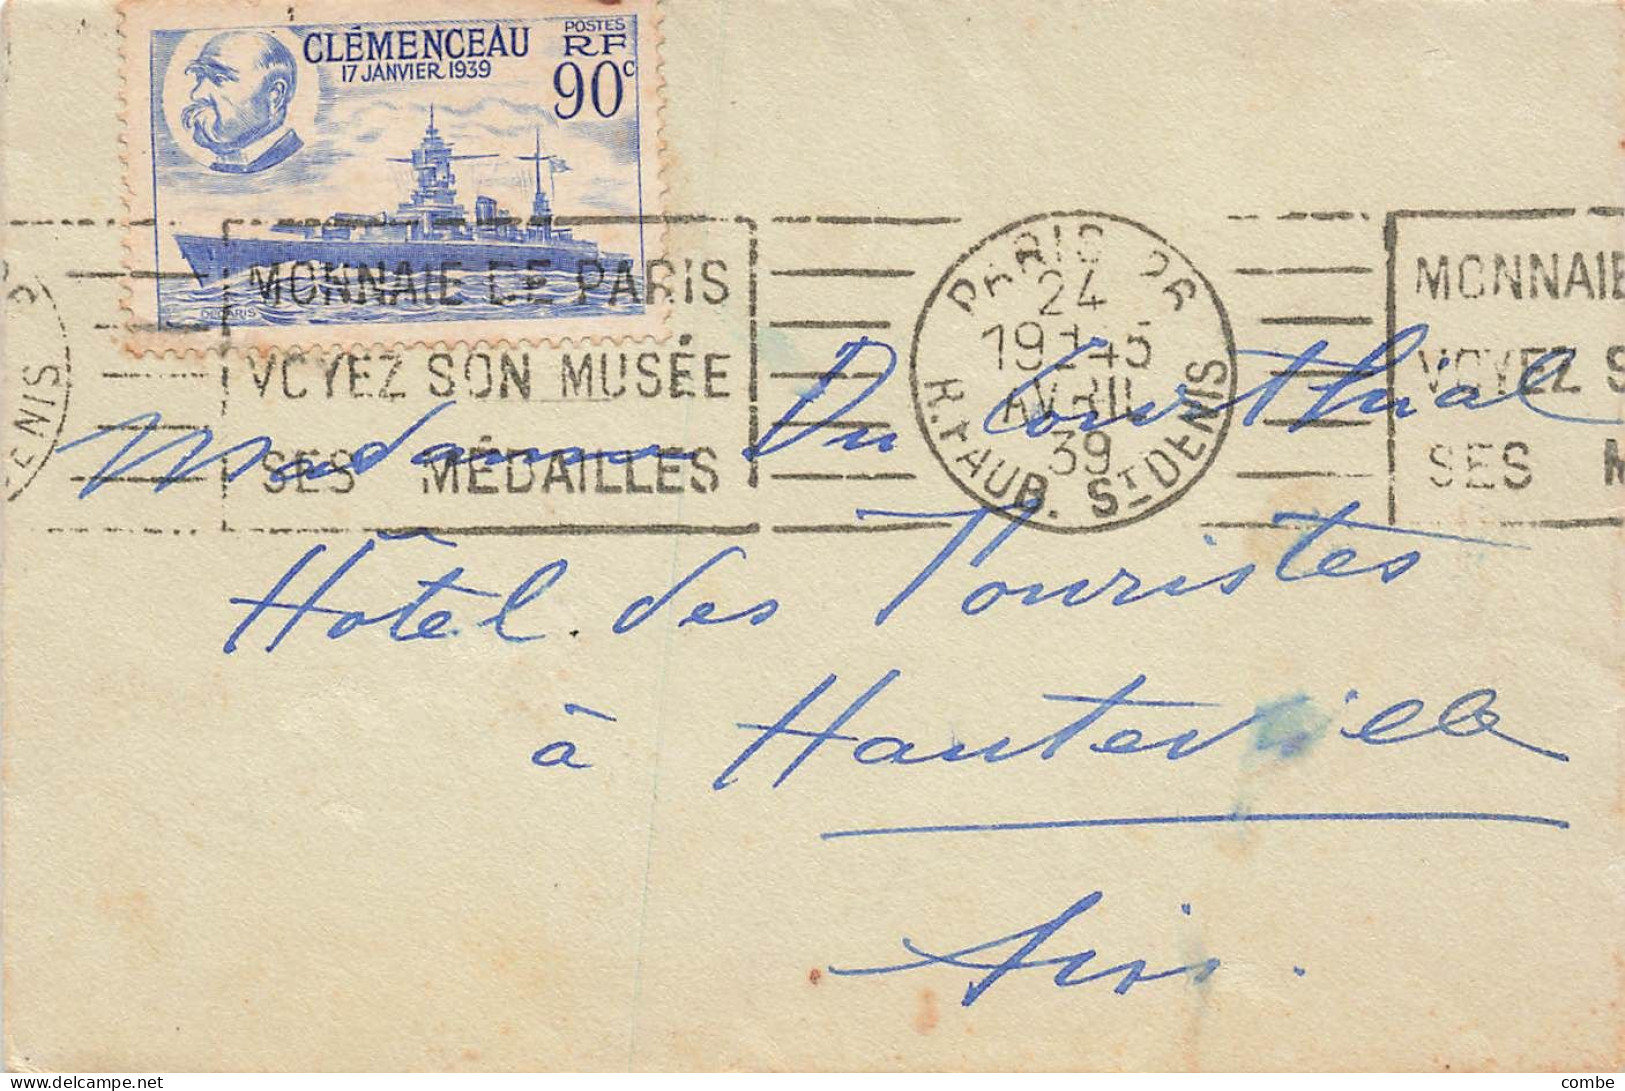 CLÉMENCEAU
17 JANVIER 1939
POSTES
RF
90c
DECARIS
MONNAIE DE PARIS
VOYEZ SON MUSÉE
SES MÉDAILLES
PARIS
24
19
AVRIL
39
R. FAUB. ST DENIS
MONNAIE
VOYEZ S
SES M
ENIS
Madame Du Courthial
Hôtel des Touristes
à Hauteville
Ain.
delcampe.net
combe